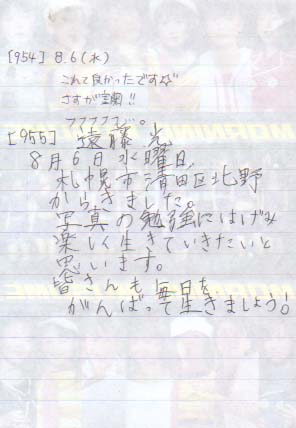 [954] 8.6(水)
これで良かったです☆"
さすが室蘭!!
フフフフフ…。
[955] 遠藤 光
8月6日水曜日,
札幌市清田区北野
からきました。
写真の勉強にはげみ
楽しく生きていきたいと
思います。
皆さんも毎日を
がんばって生きましょう!